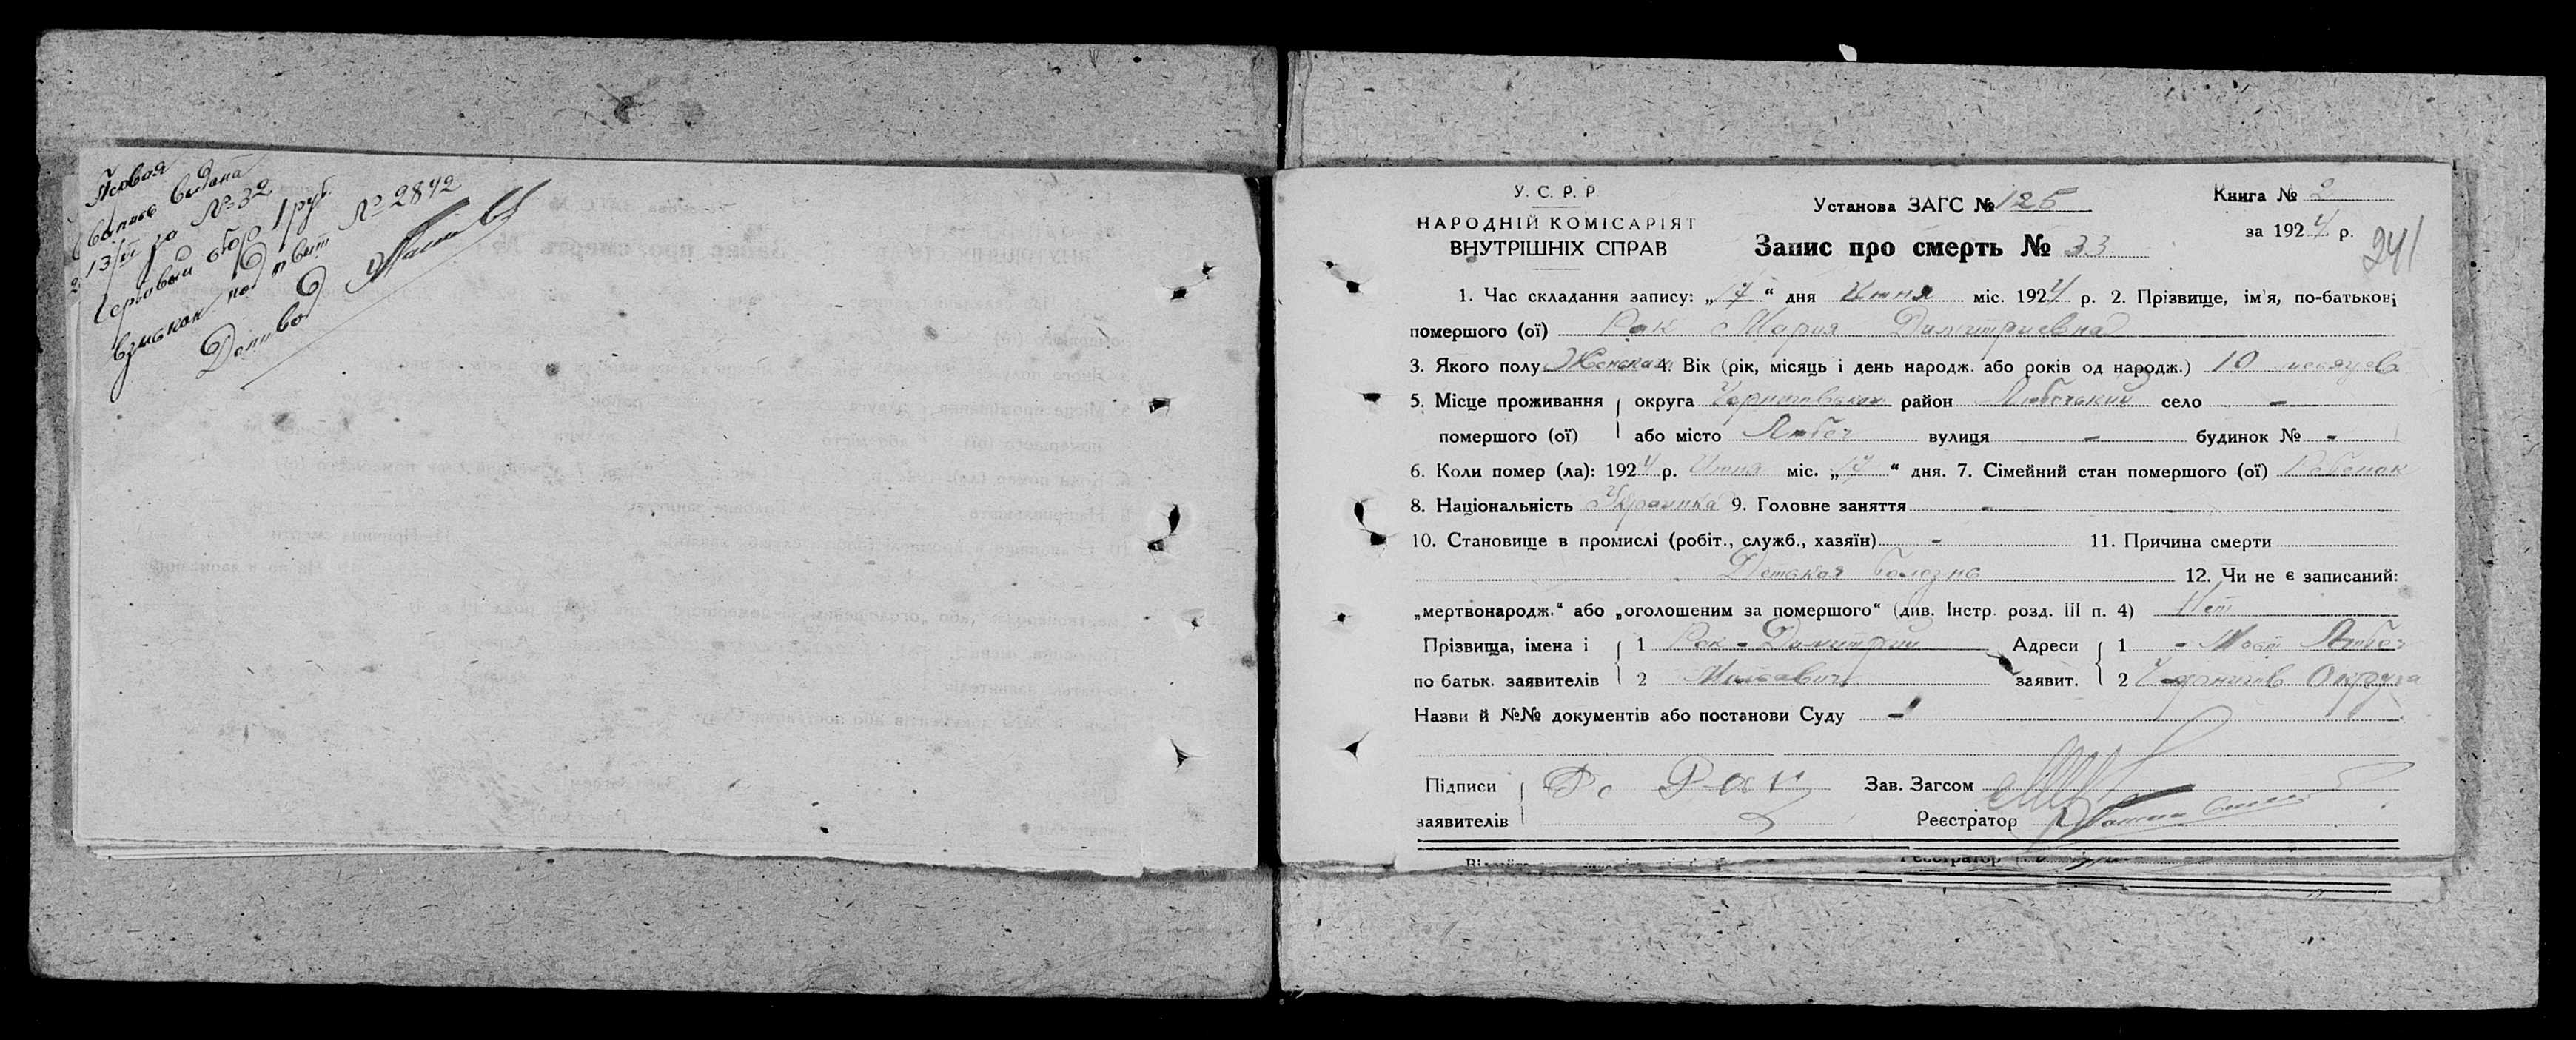 выпись выдана
13/III за № 32
Гербовый сбор 1 руб.
взыскан по квит № 2842
У. С. Р. Р.
НАРОДНІЙ КОМІСАРІЯТ
ВНУТРІШНІХ СПРАВ
Установа ЗАГС № 125
Книга № 2
за 1924 р.
241
Запис про смерть № 33
1. Час складання запису: „17“ дня Июня міс. 1924 р. 2. Прізвище, ім'я, по-батькові
помершого (ої) Рак Мария Димитриевна
3. Якого полу Женская 4. Вік (рік, місяць і день народж. або років од народж.) 10 месяцев
5. Місце проживання округа Черниговская район Любечский село -
помершого (ої) або місто Любеч вулиця - будинок № -
6. Коли помер (ла): 1924 р. Июня міс. „17“ дня. 7. Сімейний стан помершого (ої) Ребенок
8. Національність Украинка 9. Головне заняття -
10. Становище в промислі (робіт., служб., хазяїн) - 11. Причина смерти
Детская болезнь 12. Чи не є записаний:
„мертвонародж.“ або „оголошеним за помершого“ (див. Інстр. розд. III п. 4) Нет
Прізвища, імена і 1 Рак - Димитрий Адреси 1 - Мест Любеч
по батьк. заявителів 2 заявит. 2 Чернигов Округа
Назви й №№ документів або постанови Суду -
Підписи Рак Зав. Загсом
заявителів Реєстратор
Реєстратор